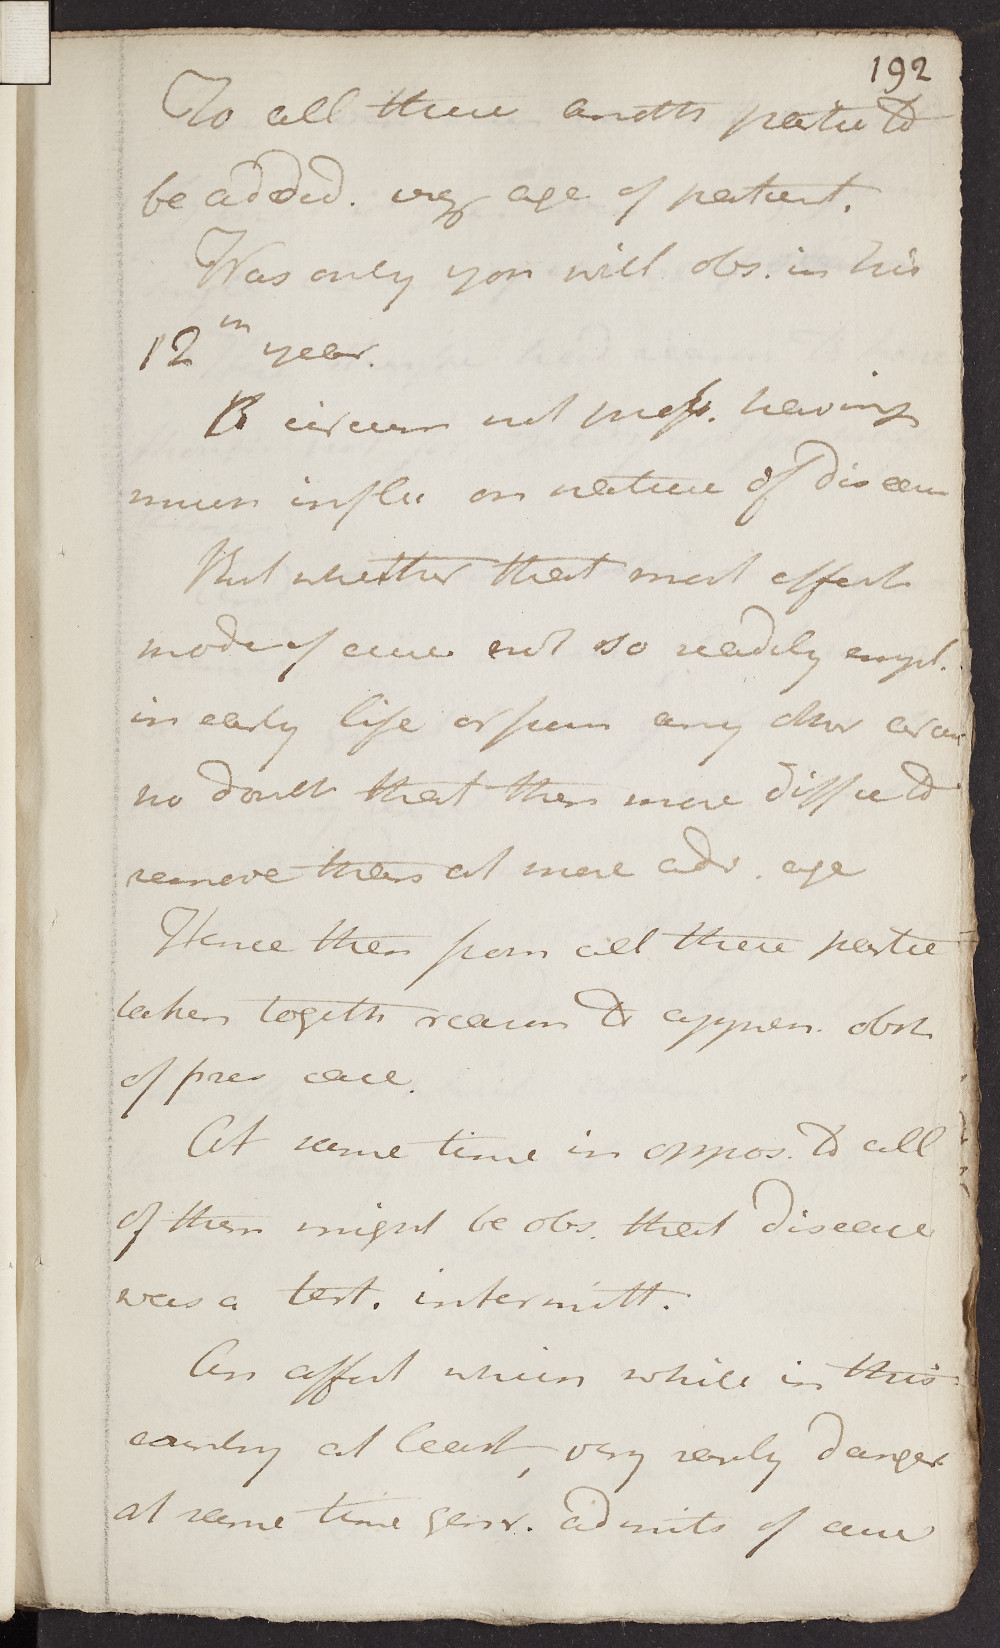 192
To all these anoth partic to
be added. viz age of patient.
Was only you will obs. in his
12th year.
A circum not prob. having
much influ on nature of disease
But whether that most effect
mode of cure not so readily empl.
in early life or from any other circum
no doubt that then more diffic to
remove than at more adv. age
Hence then from all these partic
taken togeth reason to appreh. obst
of pres case.
At same time in oppos. to all
of them might be obs. that disease
was a tert. intermitt.
An affect which while in this
country at least, very rarely danger
at same time gener. admits of cure